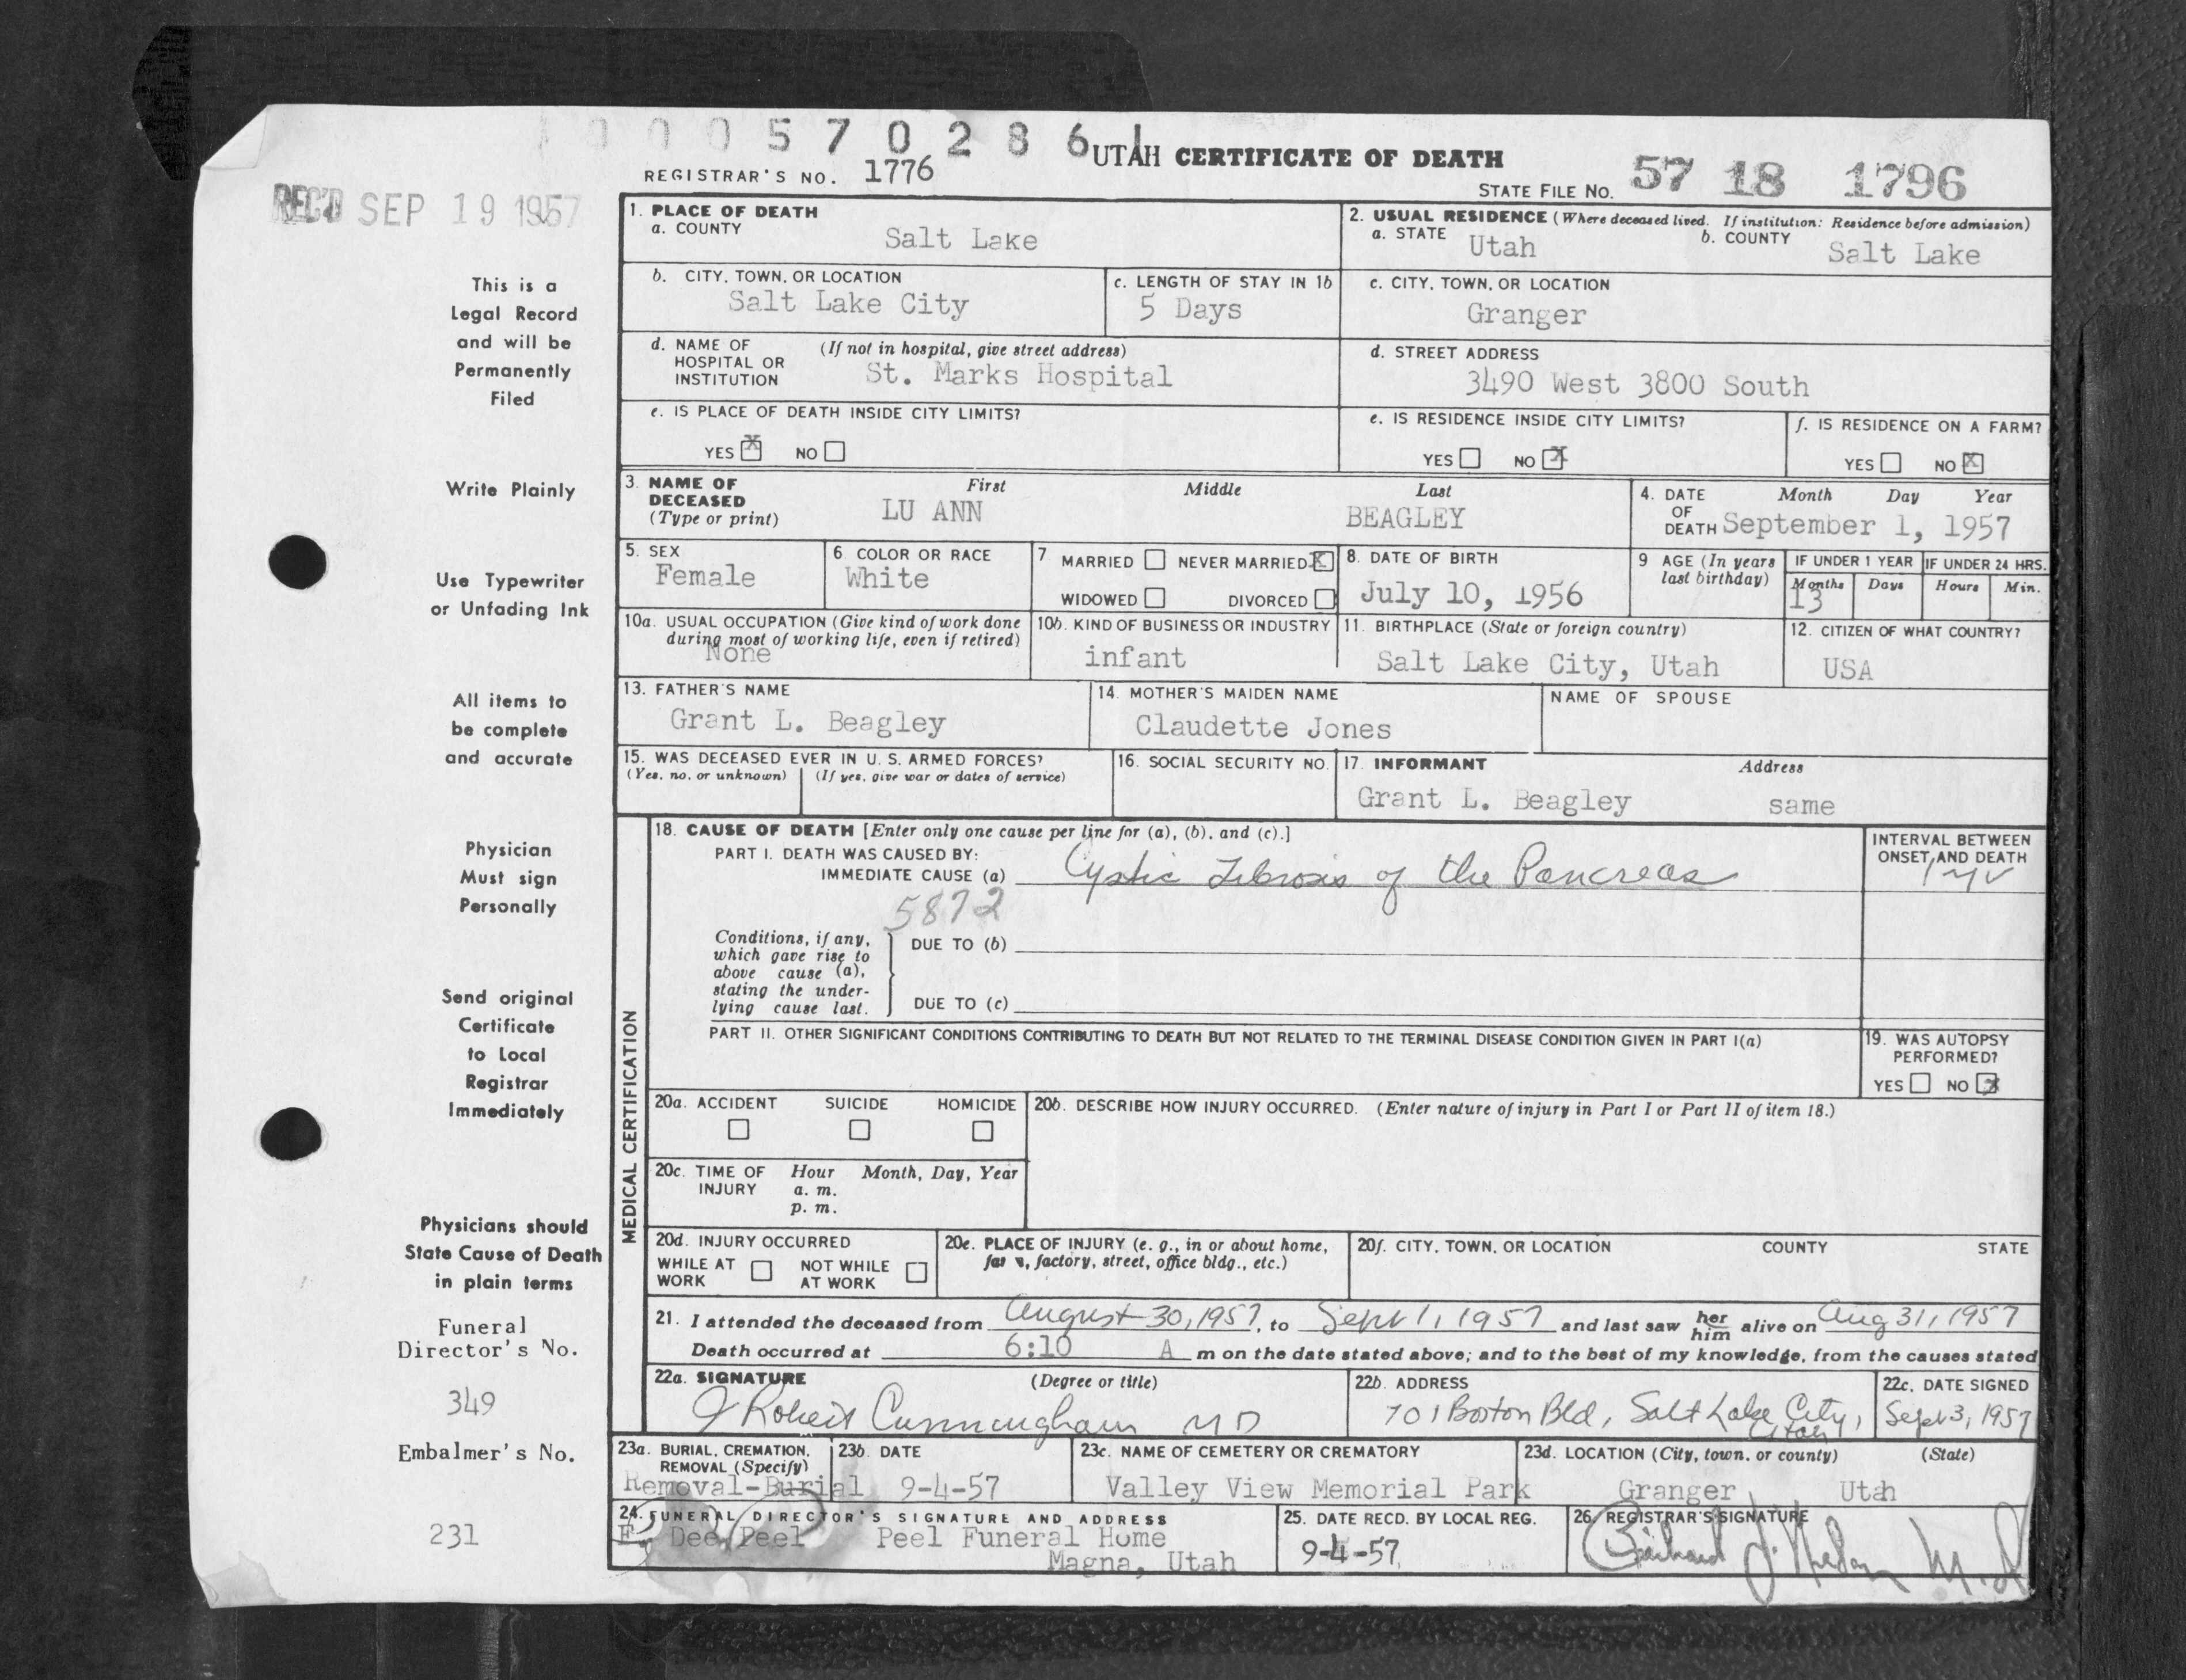 0 0 0 5 7 0 2 8 6 1
UTAH CERTIFICATE OF DEATH
REGISTRAR'S NO. 1776
STATE FILE NO. 57 18 1796
REC'D SEP 19 1957
This is a
Legal Record
and will be
Permanently
Filed
Write Plainly
Use Typewriter
or Unfading Ink
All items to
be complete
and accurate
Physician
Must sign
Personally
Send original
Certificate
to Local
Registrar
Immediately
Physicians should
State Cause of Death
in plain terms
Funeral
Director's No.
349
Embalmer's No.
231
1. PLACE OF DEATH
a. COUNTY Salt Lake
2. USUAL RESIDENCE (Where deceased lived. If institution: Residence before admission)
a. STATE Utah b. COUNTY Salt Lake
b. CITY, TOWN, OR LOCATION
Salt Lake City
c. LENGTH OF STAY IN 1b
5 Days
c. CITY, TOWN, OR LOCATION
Granger
d. NAME OF HOSPITAL OR INSTITUTION (If not in hospital, give street address)
St. Marks Hospital
d. STREET ADDRESS
3490 West 3800 South
e. IS PLACE OF DEATH INSIDE CITY LIMITS?
YES X NO
e. IS RESIDENCE INSIDE CITY LIMITS?
YES NO X
f. IS RESIDENCE ON A FARM?
YES NO X
3. NAME OF DECEASED (Type or print) First Middle Last
LU ANN BEAGLEY
4. DATE OF DEATH Month Day Year
September 1, 1957
5. SEX
Female
6 COLOR OR RACE
White
7 MARRIED NEVER MARRIED X
WIDOWED DIVORCED
8. DATE OF BIRTH
July 10, 1956
9 AGE (In years last birthday)
IF UNDER 1 YEAR IF UNDER 24 HRS.
Months Days Hours Min.
13
10a. USUAL OCCUPATION (Give kind of work done during most of working life, even if retired)
None
10b. KIND OF BUSINESS OR INDUSTRY
infant
11. BIRTHPLACE (State or foreign country)
Salt Lake City, Utah
12. CITIZEN OF WHAT COUNTRY?
USA
13. FATHER'S NAME
Grant L. Beagley
14. MOTHER'S MAIDEN NAME
Claudette Jones
NAME OF SPOUSE
15. WAS DECEASED EVER IN U. S. ARMED FORCES?
(Yes, no, or unknown) (If yes, give war or dates of service)
16. SOCIAL SECURITY NO.
17. INFORMANT Address
Grant L. Beagley same
MEDICAL CERTIFICATION
18. CAUSE OF DEATH [Enter only one cause per line for (a), (b), and (c).]
PART I. DEATH WAS CAUSED BY:
IMMEDIATE CAUSE (a) Cystic Fibrosis of the Pancreas
INTERVAL BETWEEN
ONSET AND DEATH
1 yr
5872
Conditions, if any,
which gave rise to
above cause (a),
stating the under-
lying cause last.
DUE TO (b)
DUE TO (c)
PART II. OTHER SIGNIFICANT CONDITIONS CONTRIBUTING TO DEATH BUT NOT RELATED TO THE TERMINAL DISEASE CONDITION GIVEN IN PART I(a)
19. WAS AUTOPSY
PERFORMED?
YES NO X
20a. ACCIDENT SUICIDE HOMICIDE
20b. DESCRIBE HOW INJURY OCCURRED. (Enter nature of injury in Part I or Part II of item 18.)
20c. TIME OF INJURY Hour Month, Day, Year
a. m.
p. m.
20d. INJURY OCCURRED
WHILE AT WORK NOT WHILE AT WORK
20e. PLACE OF INJURY (e. g., in or about home,
factory, street, office bldg., etc.)
20f. CITY, TOWN, OR LOCATION COUNTY STATE
21. I attended the deceased from August 30, 1957, to Sept 1, 1957 and last saw her him alive on Aug 31, 1957
Death occurred at 6:10 A m on the date stated above; and to the best of my knowledge, from the causes stated
22a. SIGNATURE (Degree or title)
J Robert Cunningham MD
22b. ADDRESS
701 Boston Bld, Salt Lake City, Utah
22c. DATE SIGNED
Sept 3, 1957
23a. BURIAL, CREMATION, REMOVAL (Specify)
Removal-Burial
23b. DATE
9-4-57
23c. NAME OF CEMETERY OR CREMATORY
Valley View Memorial Park
23d. LOCATION (City, town, or county) (State)
Granger Utah
24. FUNERAL DIRECTOR'S SIGNATURE AND ADDRESS
E. Dee Peel Peel Funeral Home
Magna, Utah
25. DATE RECD. BY LOCAL REG.
9-4-57
26. REGISTRAR'S SIGNATURE